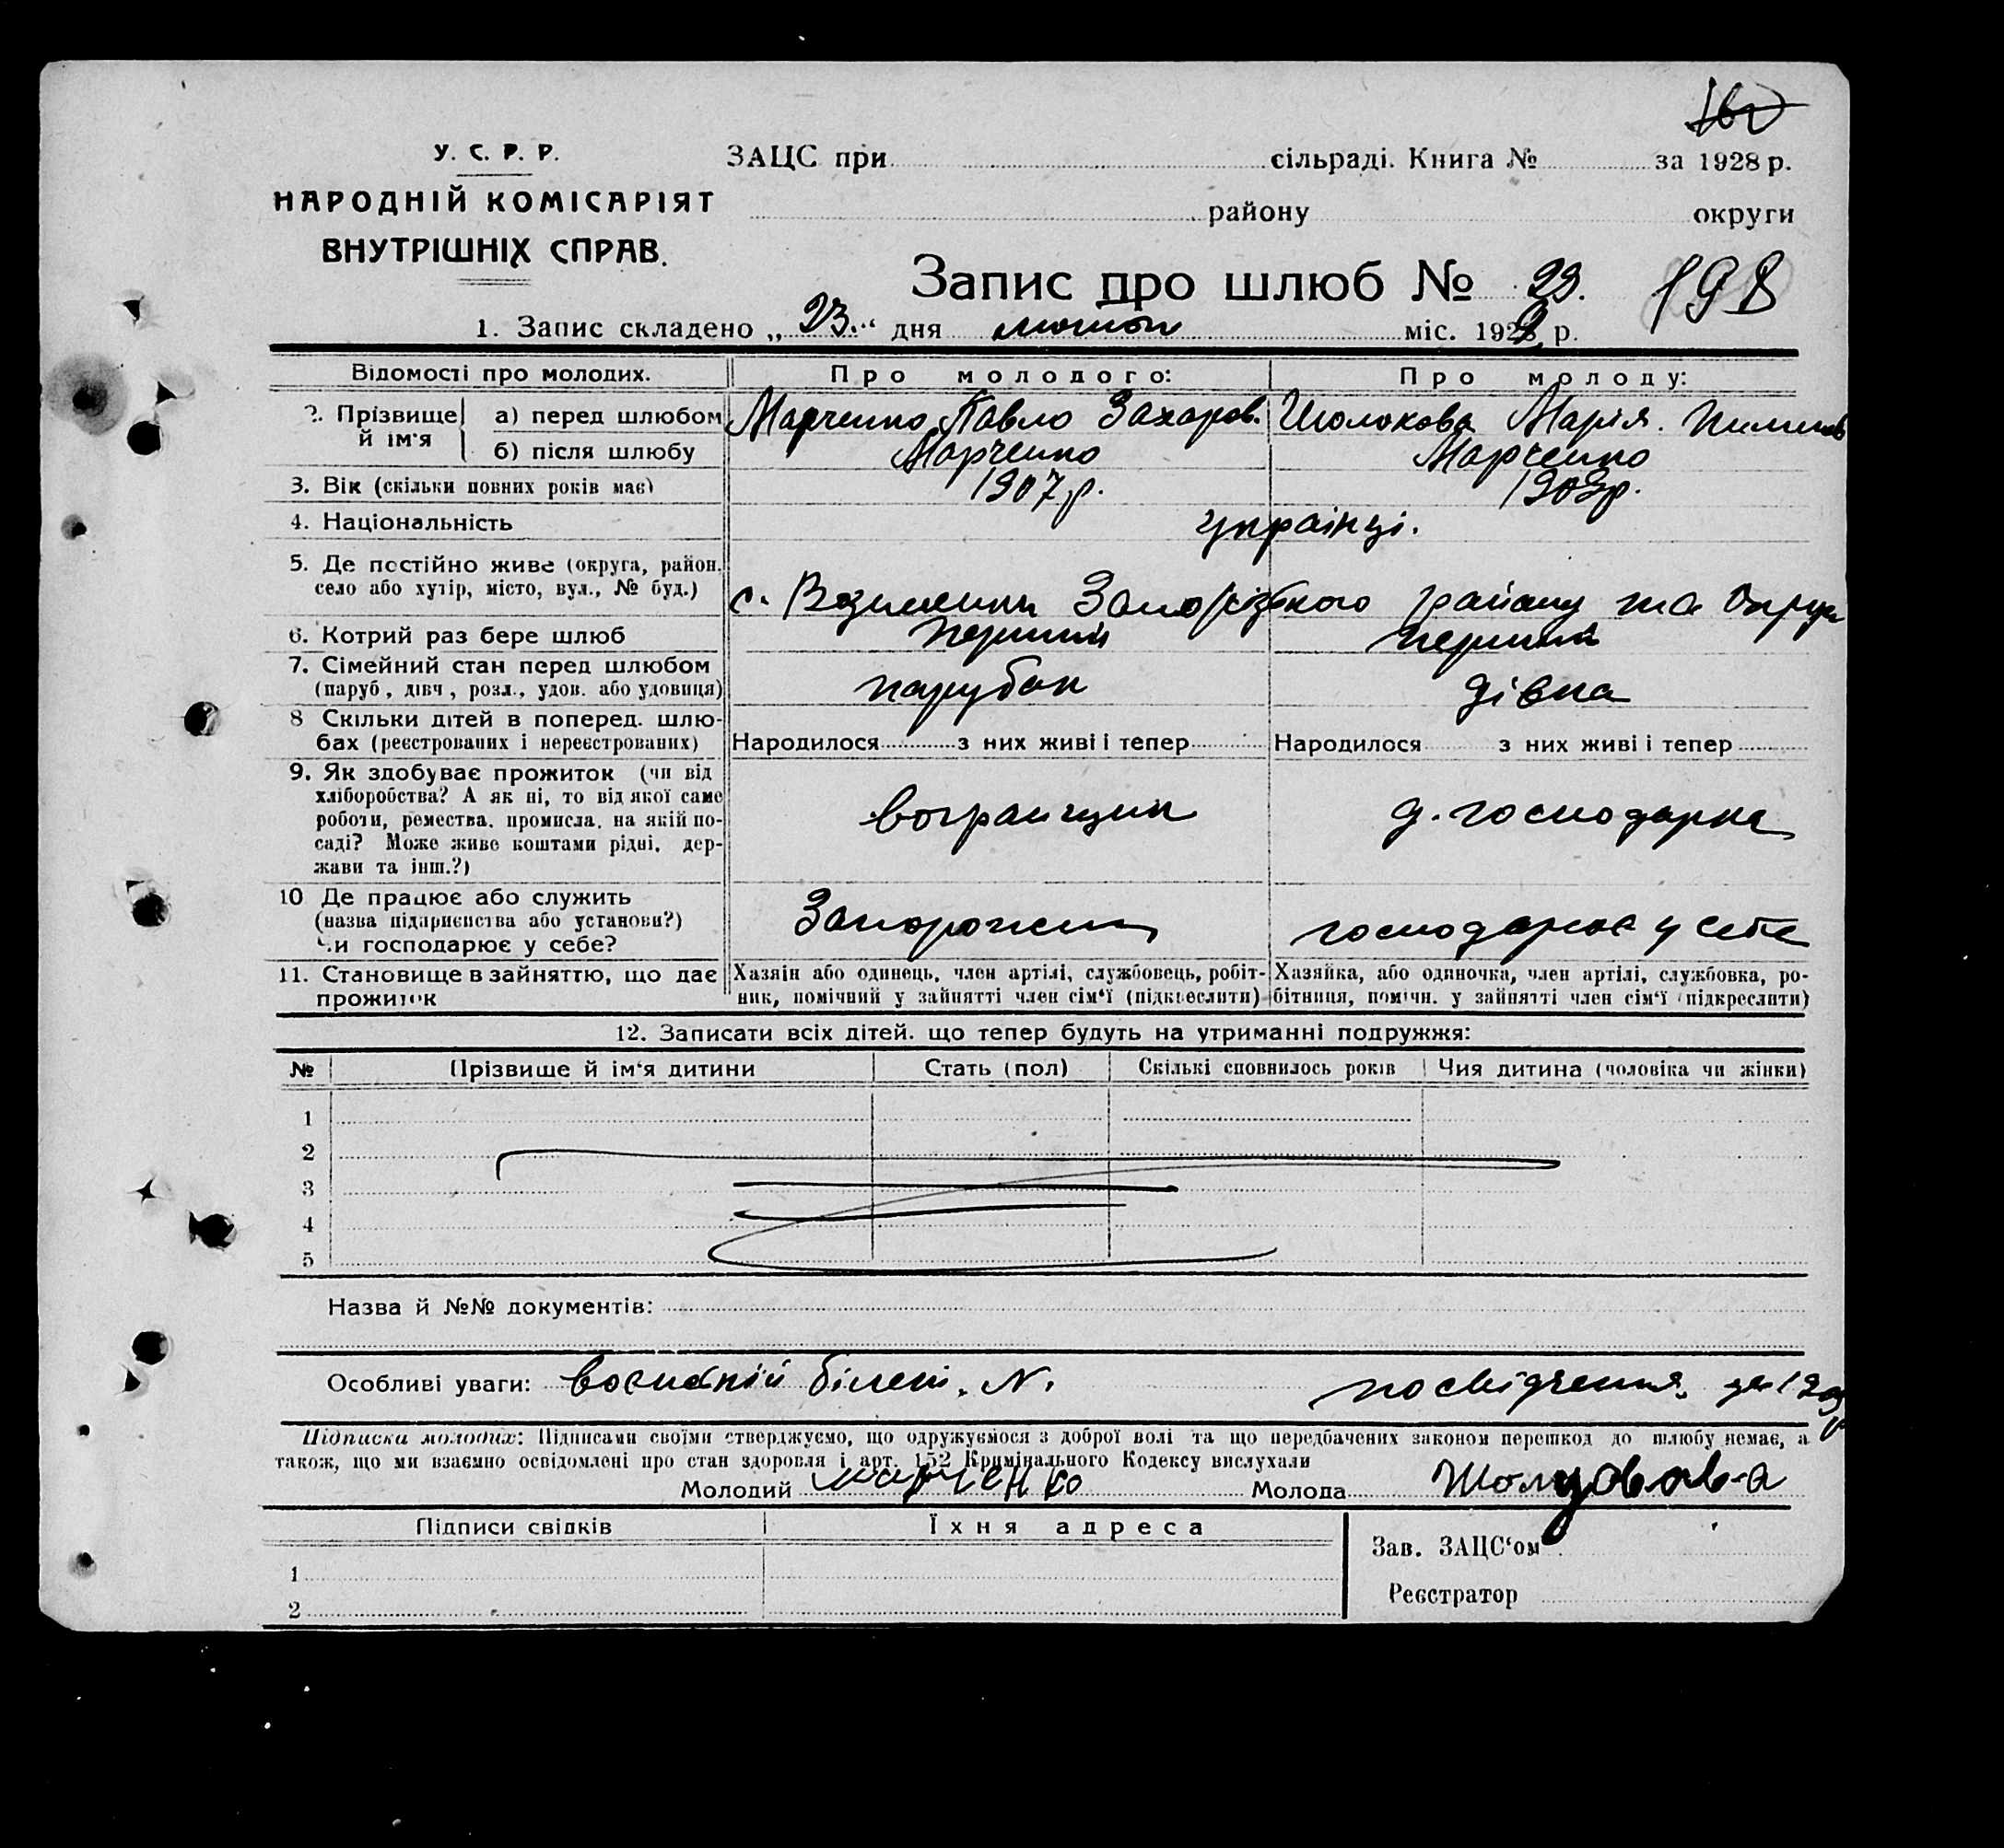 У. С. Р. Р.
НАРОДНІЙ КОМІСАРІЯТ
ВНУТРІШНІХ СПРАВ.
ЗАЦС при сільраді. Книга № за 1928 р.
району округи
Запис про шлюб № 23. 198
1. Запис складено „23.“ дня лютого міс. 1929 р.
Відомості про молодих. Про молодого: Про молоду:
2. Прізвище й ім'я а) перед шлюбом Марченко Павло Захаров. Марія.
б) після шлюбу Марченко Марченко
3. Вік (скільки повних років має) 1907 р. 1909р.
4. Національність українці.
5. Де постійно живе (округа, район, село або хутір, місто, вул., № буд.) с. Запорізького району та Округи
6. Котрий раз бере шлюб перший перший
7. Сімейний стан перед шлюбом (паруб, дівч, розл., удов. або удовиця) парубок дівка
8 Скільки дітей в поперед. шлюбах (реєстрованих і нереєстрованих) Народилося з них живі і тепер Народилося з них живі і тепер
9. Як здобуває прожиток (чи від хліборобства? А як ні, то від якої саме роботи, ремества, промисла, на якій посаді? Може живе коштами рідні, держави та інш.?) д. господарка
10 Де працює або служить (назва підприємства або установи?) Чи господарює у себе? Запорожжя господарює у себе
11. Становище в зайняттю, що дає прожиток Хазяїн або одинець, член артілі, службовець, робітник, помічний у зайнятті член сім'ї (підкреслити) Хазяйка, або одиночка, член артілі, службовка, робітниця, помічн. у зайнятті член сім'ї (підкреслити)
12. Записати всіх дітей, що тепер будуть на утриманні подружжя:
№ Прізвище й ім'я дитини Стать (пол) Скількі сповнилось років Чия дитина (чоловіка чи жінки)
1
2
3
4
5
Назва й №№ документів:
Особливі уваги: білет. N. посвідчення
Підписка молодих: Підписами своїми стверджуємо, що одружуємося з доброї волі та що передбачених законом перешкод до шлюбу немає, а
також, що ми взаємно освідомлені про стан здоровля і арт. 152 Кримінального Кодексу вислухали
Молодий Марченко Молода
Підписи свідків Їхня адреса
Зав. ЗАЦС'ом
1
Реєстратор
2